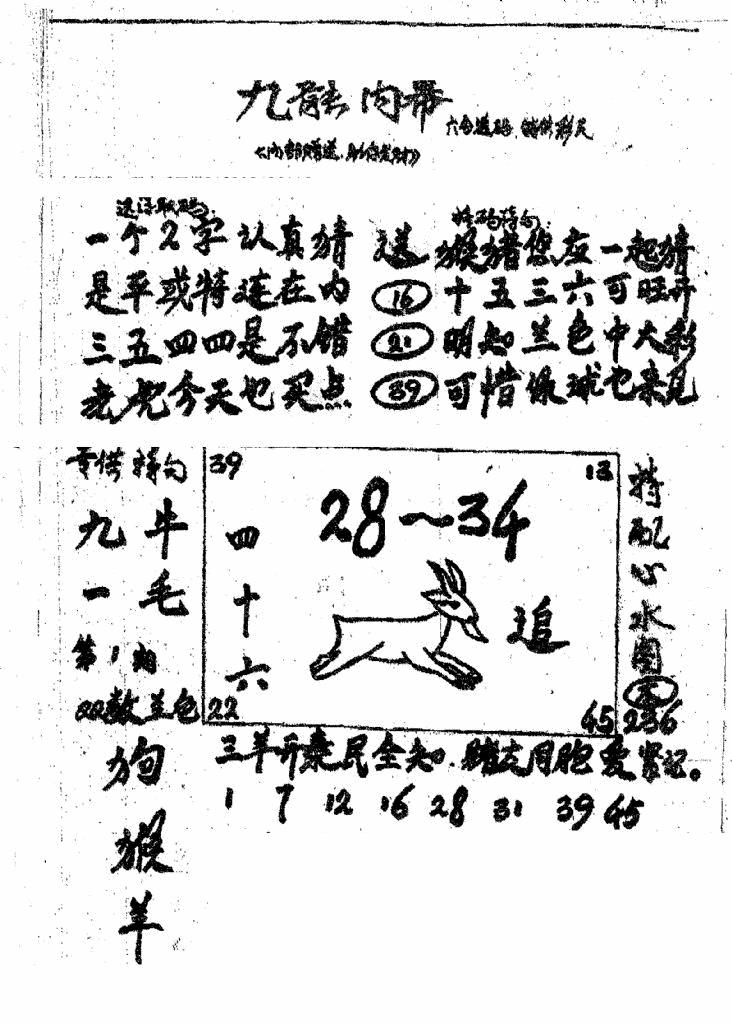 九龍内幕
六合送码.特供彩民
《内部赠送.助你发财》
一个2字认真猜
是平或特连在内
三五四四是不错
老虎今天也买点
特码诗句.
送猴猪您友一起猜
16 十五三六可旺开
21 明知兰色中大彩
39 可惜绿球也来见
39
13
28～34
四十六
追
22
45
九牛
一毛
第1期
兰色
狗
猴
羊
特配心水图
236
三羊开泰民全知.
1 7 12 16 28 31 39 45